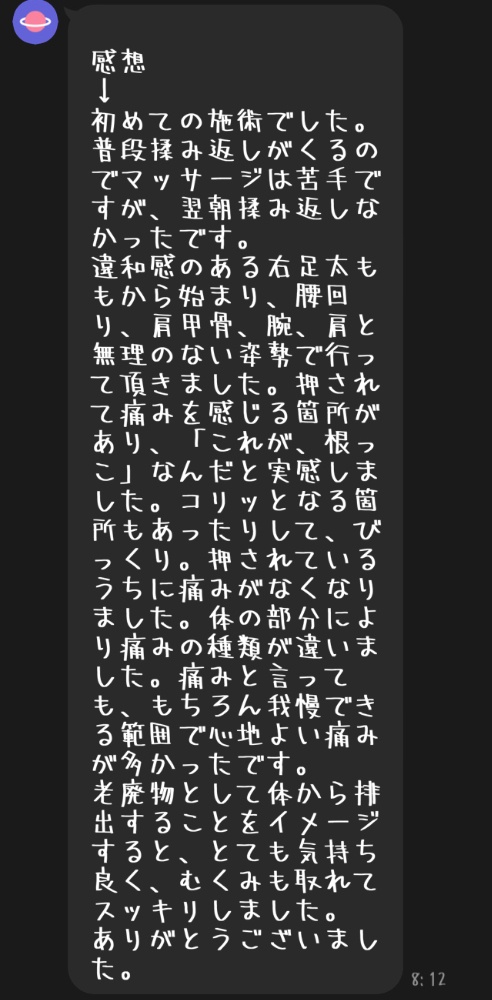 感想
↓
初めての施術でした。
普段揉み返しがくるの
でマッサージは苦手で
すが、翌朝揉み返しな
かったです。
違和感のある右足太も
もから始まり、腰回
り、肩甲骨、腕、肩と
無理のない姿勢で行っ
て頂きました。押され
て痛みを感じる箇所が
あり、「これが、根っ
こ」なんだと実感しま
した。コリッとなる箇
所もあったりして、び
っくり。押されている
うちに痛みがなくなり
ました。体の部分によ
り痛みの種類が違いま
した。痛みと言って
も、もちろん我慢でき
る範囲で心地よい痛み
が多かったです。
老廃物として体から排
出することをイメージ
すると、とても気持ち
良く、むくみも取れて
スッキリしました。
ありがとうございまし
た。
8:12